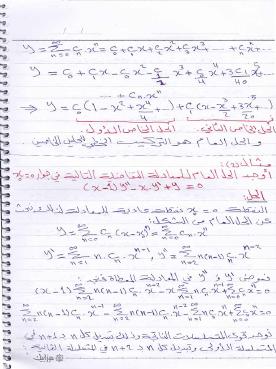 y = Σ_{n=0}^{∞} cₙxⁿ = c₀ + c₁x + c₂x² + c₃x³ + ... + cₙxⁿ ...
y = c₀ + c₁x - c₀x² - x³ + x⁴ +
... + cₙxⁿ
⇒ y = c₀(1 - x² + x⁴ ...) + c₁(x - x³ + 3x⁵ ...)
الحل الخاص الأول الحل الخاص الثاني
والحل العام هو التركيب الخطي للحلين الخاصين.
مثال (2):
أوجد الحل العام للمعادلة التفاضلية التالية في جوار x₀ = 0
(x-1)y″ - xy′ + y = 0
الحل:
النقطة x₀ = 0 نقطة عادية للمعادلة لذلك
الحل العام من الشكل:
y = Σ_{n=0}^{∞} cₙ(x-x₀)ⁿ = Σ_{n=0}^{∞} cₙxⁿ
y′ = Σ_{n=1}^{∞} n cₙxⁿ⁻¹, y″ = Σ_{n=2}^{∞} n(n-1)cₙxⁿ⁻²
نعوض y و y′ و y″ في المعادلة المعطاة فنجد
(x-1) Σ_{n=2}^{∞} n(n-1)cₙxⁿ⁻² - x Σ_{n=1}^{∞} n cₙxⁿ⁻¹ + Σ_{n=0}^{∞} cₙxⁿ = 0
Σ_{n=2}^{∞} n(n-1)cₙxⁿ⁻¹ - Σ_{n=2}^{∞} n(n-1)cₙxⁿ⁻² - Σ_{n=1}^{∞} n cₙxⁿ + Σ_{n=0}^{∞} cₙxⁿ = 0
نوحد قوى وذلك بتبديل كل n بـ n+1 في
الأولى وتبديل كل n بـ n+2 في الثانية: